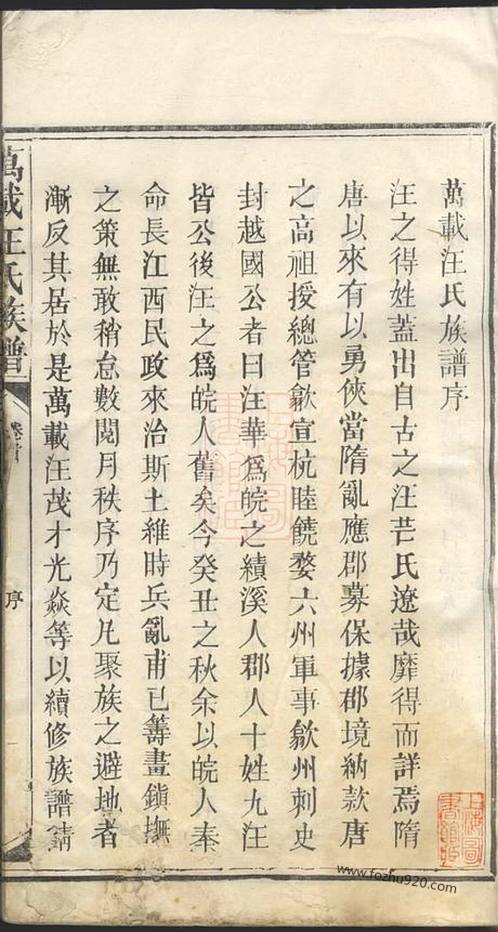 萬載汪氏族譜序
汪之得姓蓋出自古之汪芒氏遼哉靡得而詳焉隋
唐以來有以勇俠當隋亂應郡募保據郡境納款唐
之高祖授總管歙宣杭睦饒婺六州軍事歙州刺史
封越國公者曰汪華為皖之績溪人郡人十姓九汪
皆公後汪之為皖人舊矣今癸丑之秋余以皖人奉
命長江西民政來治斯土維時兵亂甫已籌畫鎮撫
之策無敢稍怠數閱月秩序乃定凡聚族之避地者
漸反其居於是萬載汪茂才光焱等以續修族譜錆
萬載汪氏族譜
卷首
序
上海圖書館藏
www.fozhu920.com